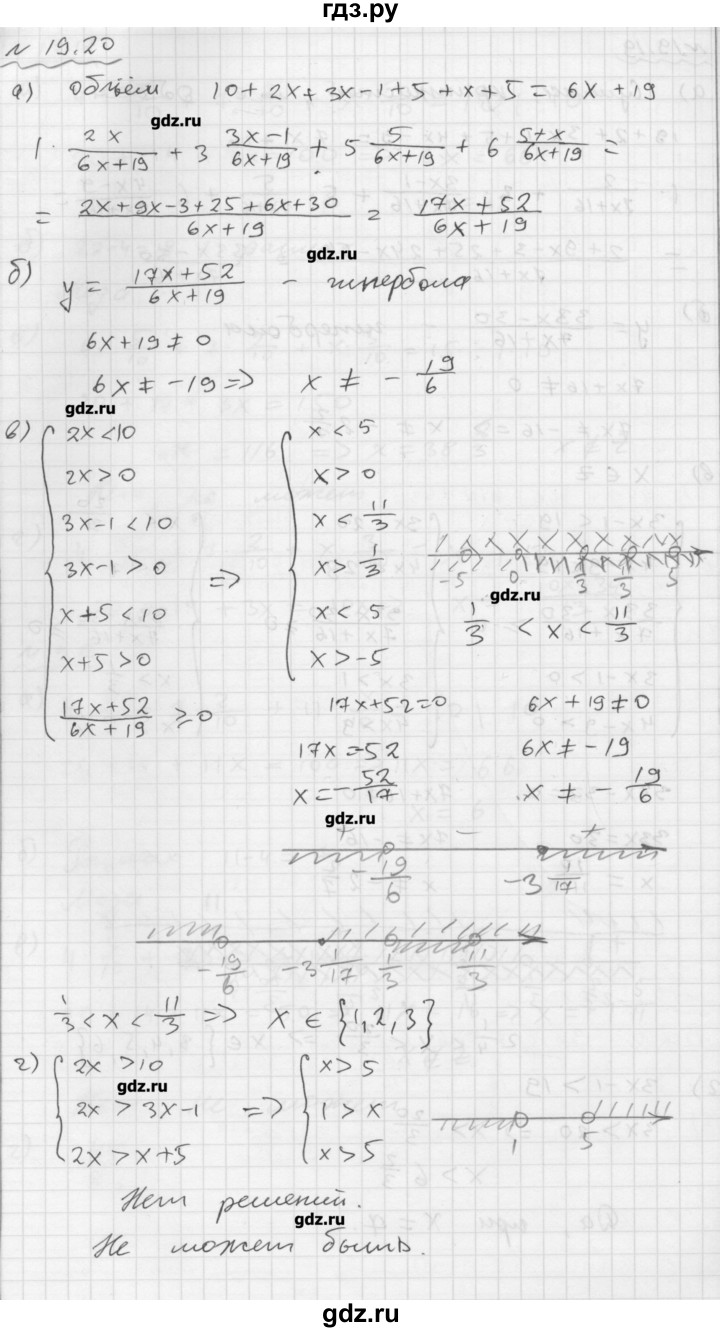 гдз.ру
№ 19.20
а) объём 10+2x+3x-1+5+x+5=6x+19
gdz.ru
1·\frac{2x}{6x+19}+3\frac{3x-1}{6x+19}+5\frac{5}{6x+19}+6\frac{5+x}{6x+19}=
=\frac{2x+9x-3+25+6x+30}{6x+19}=\frac{17x+52}{6x+19}
gdz.ru
б) y=\frac{17x+52}{6x+19} - гипербола
6x+19≠0
6x≠-19=> x≠-\frac{19}{6}
gdz.ru
в) 2x<10 x<5
2x>0 x>0
3x-1<10 x<\frac{11}{3}
3x-1>0 => x>\frac{1}{3} -5 0 \frac{1}{3}
gdz.ru
x+5<10 x<5 \frac{1}{3}<x<\frac{11}{3}
x+5>0 x>-5
\frac{17x+52}{6x+19}≥0 17x+52=0 6x+19≠0
17x=-52 6x≠-19
x=-\frac{52}{17} x≠-\frac{19}{6}
gdz.ru
+ - +
-\frac{19}{6} -3\frac{1}{17}
-\frac{19}{6} -3\frac{1}{17} \frac{1}{3} \frac{11}{3}
\frac{1}{3}<x<\frac{11}{3} => x∈{1,2,3}
г) 2x>10 x>5
gdz.ru
2x>3x-1 => 1>x
2x>x+5 x>5 1 5
Нет решений.
gdz.ru
Не может быть.
gdz.ru